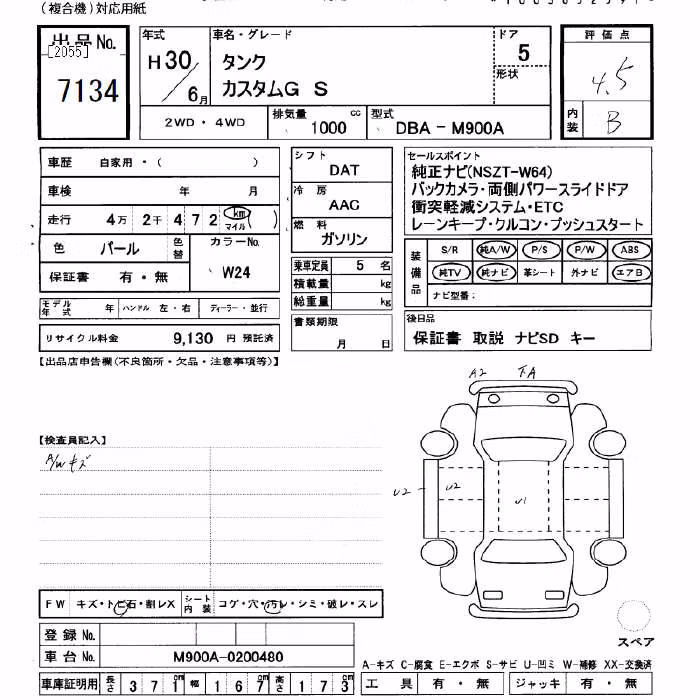 (複合機)対応用紙
出品No.
[2055]
7134
年式
H30/6月
車名・グレード
タンク
カスタムG S
ドア
5
形状
評価点
4.5
内装
B
2WD・4WD
排気量 1000 cc
型式 DBA-M900A
車歴 自家用・( )
車検 年 月
走行 4万 2千 4 7 2 (km マイル)
色 パール 色替
カラーNo.
W24
保証書 有・無
モデル年式 年 ハンドル 左・右 ディーラー・並行
リサイクル料金 9,130 円 預託済
シフト
DAT
冷房
AAC
燃料
ガソリン
乗車定員 5 名
積載量 kg
総重量 kg
書類期限
月 日
セールスポイント
純正ナビ(NSZT-W64)
バックカメラ・両側パワースライドドア
衝突軽減システム・ETC
レーンキープ・クルコン・プッシュスタート
装備品
S/R 純A/W P/S P/W ABS
純TV 純ナビ 革シート 外ナビ エアB
ナビ型番:
後日品
保証書 取説 ナビSD キー
【出品店申告欄(不良箇所・欠品・注意事項等)】
【検査員記入】
A/Wキズ
A2 下A
U2 U2 U1
FW キズ・トビ石・割レX シート内装 コゲ・穴・汚レ・シミ・破レ・スレ
登録No.
車台No. M900A-0200480
車庫証明用 長さ 371cm 幅 167cm 高さ 173cm
スペア
A-キズ C-腐食 E-エクボ S-サビ U-凹ミ W-補修 XX-交換済
工具 有・無 ジャッキ 有・無